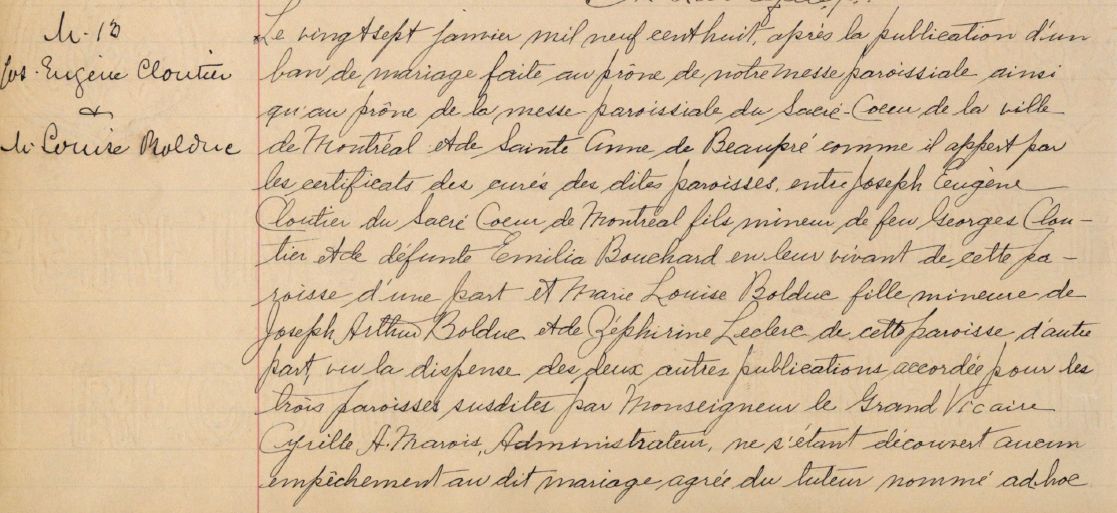 M-13
Jos. Eugène Cloutier
&
M. Louise Bolduc
Le vingtsept janvier mil neuf cent huit, après la publication d'un
ban de mariage faite au prône de notre messe paroissiale ainsi
qu'au prône de la messe paroissiale du Sacré-Coeur de la ville
de Montréal et de Sainte Anne de Beaupré comme il appert par
les certificats des curés des dites paroisses, entre Joseph Eugène
Cloutier du Sacré Coeur de Montréal fils mineur de feu Georges Clou-
tier et de défunte Emilia Bouchard en leur vivant de cette pa-
roisse d'une part et Marie Louise Bolduc fille mineure de
Joseph Arthur Bolduc et de Zéphirine Leclerc de cette paroisse d'autre
part, vu la dispense des deux autres publications accordée pour les
trois paroisses susdites par Monseigneur le Grand Vicaire
Cyrille A. Marois, Administrateur, ne s'étant découvert aucun
empêchement au dit mariage, agrée du tuteur nommé ad-hoc